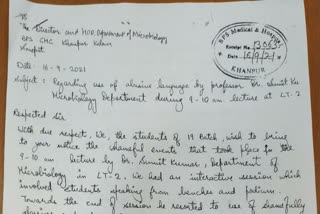 To
The Director and HOD, Department of Microbiology
BPS GMC Khanpur Kalan
Sonepat
BPS Medical & Hospital
Receipt No. 13063
Date 16/9/21
KHANPUR
Date - 16-9-2021
Subject: Regarding use of abusive language by professor Dr. Sumit Kr
Microbiology Department during 9-10 am lecture at LT-2.
Respected Sir
With due respect, We, the students of 19 Batch wish to bring
to your notice the shameful events that took place in the
9-10 am lecture by Dr. Sumit Kumar, Department of
Microbiology in LT-2. We had an interactive session which
involved students speaking from benches and podium.
Towards the end of session he resorted to use of shamefully